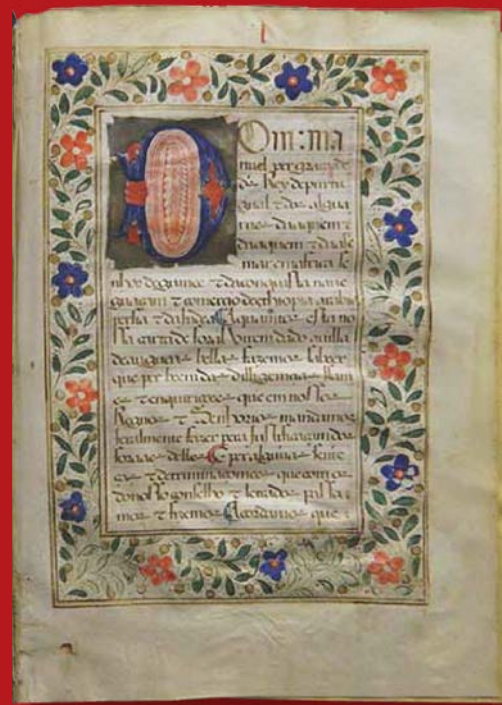 Dom: ma
nuel per graça de
ds Rey de portu
gual τ dos algar
ues daaquem τ
daalem mar em africa se
nhor de guinee τ da conquista naue
guaçam τ comercio de ethiopia arabia
persia τ da India A quantos esta no
sa carta de foral dada aa villa
fazemos saber
que per bem das dilligencias
es τ enquiriçoes que em nossos
Regnos τ Senhorios mandamos
Jeralmente fazer pera justificaçam dos
foraes delles E per alguas senten
ças τ determinaçoees que com os
do nosso conselho τ letrados
mos τ fizemos Acordamos que